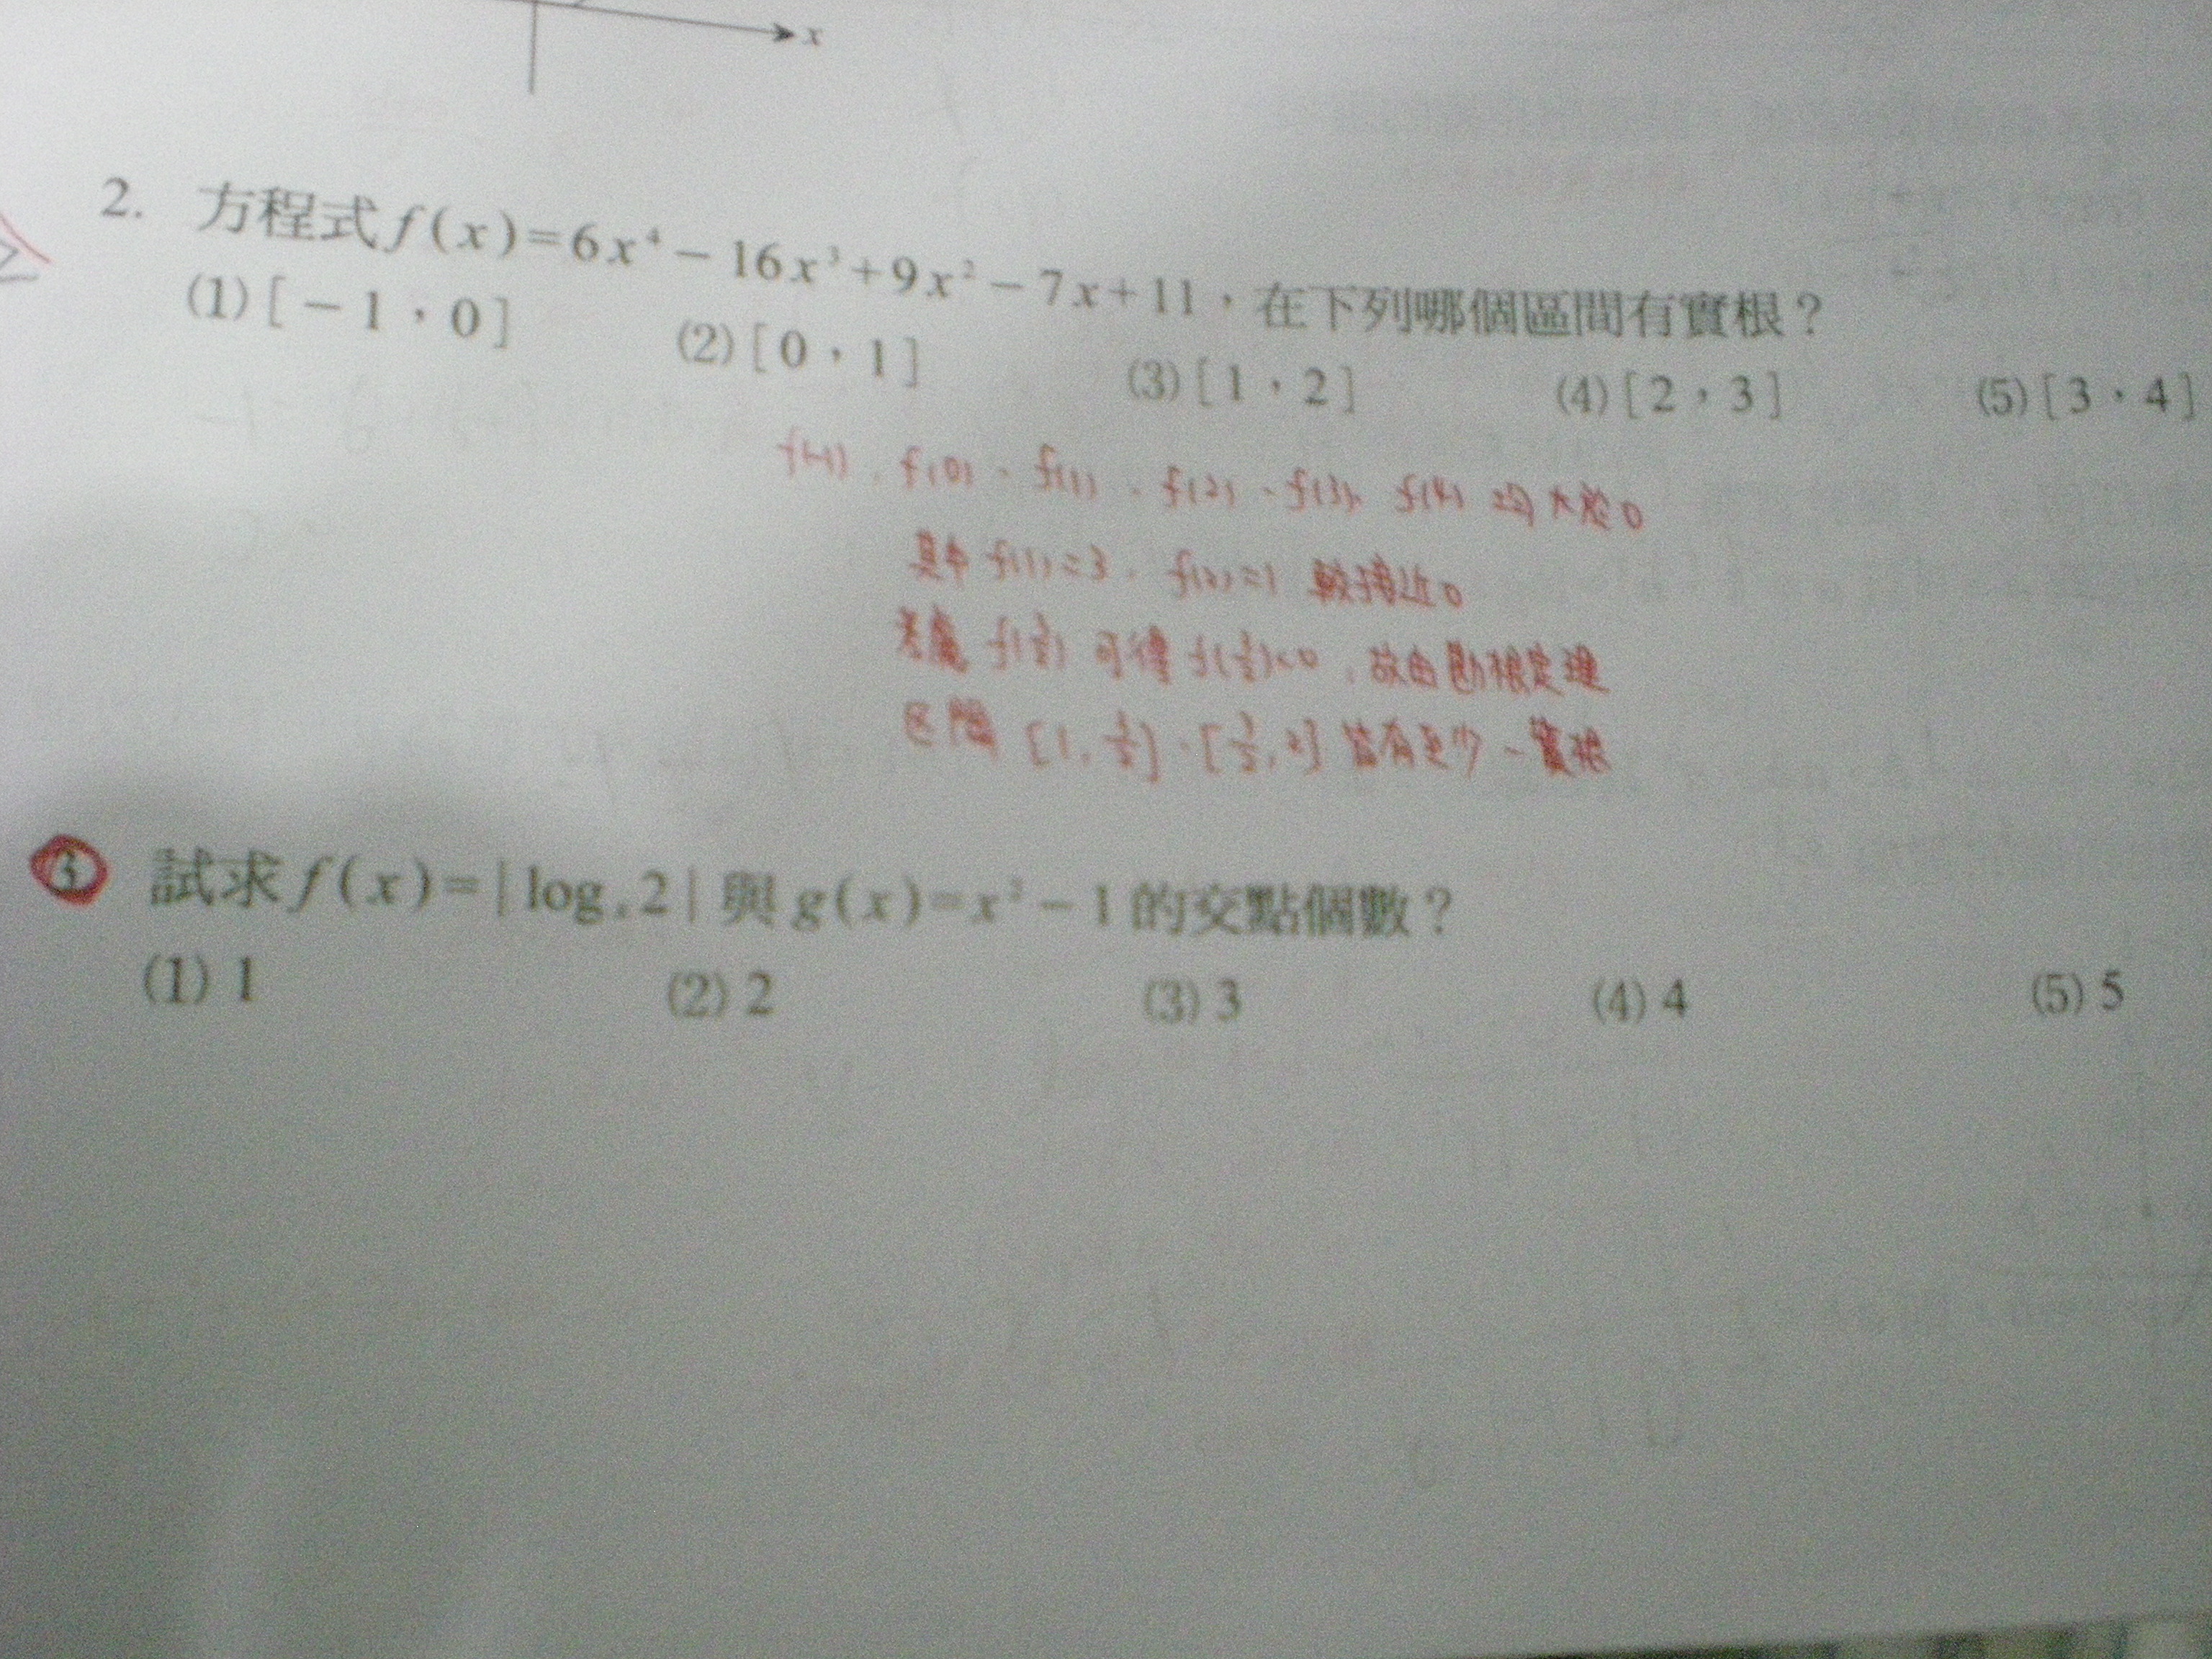 x
2. 方程式f(x)=6x⁴-16x³+9x²-7x+11，在下列哪個區間有實根？
(1)[-1，0] (2)[0，1] (3)[1，2] (4)[2，3] (5)[3，4]
f(-1)、f(0)、f(1)、f(2)、f(3)、f(4) 均大於0
其中 f(1)=3、f(2)=1 較接近0
考慮 f(3/2) 可得 f(3/2)<0，故由勘根定理
区間 [1, 3/2]、[3/2, 2] 皆有至少一實根
3. 試求f(x)=|logₓ2|與g(x)=x²-1的交點個數？
(1) 1 (2) 2 (3) 3 (4) 4 (5) 5